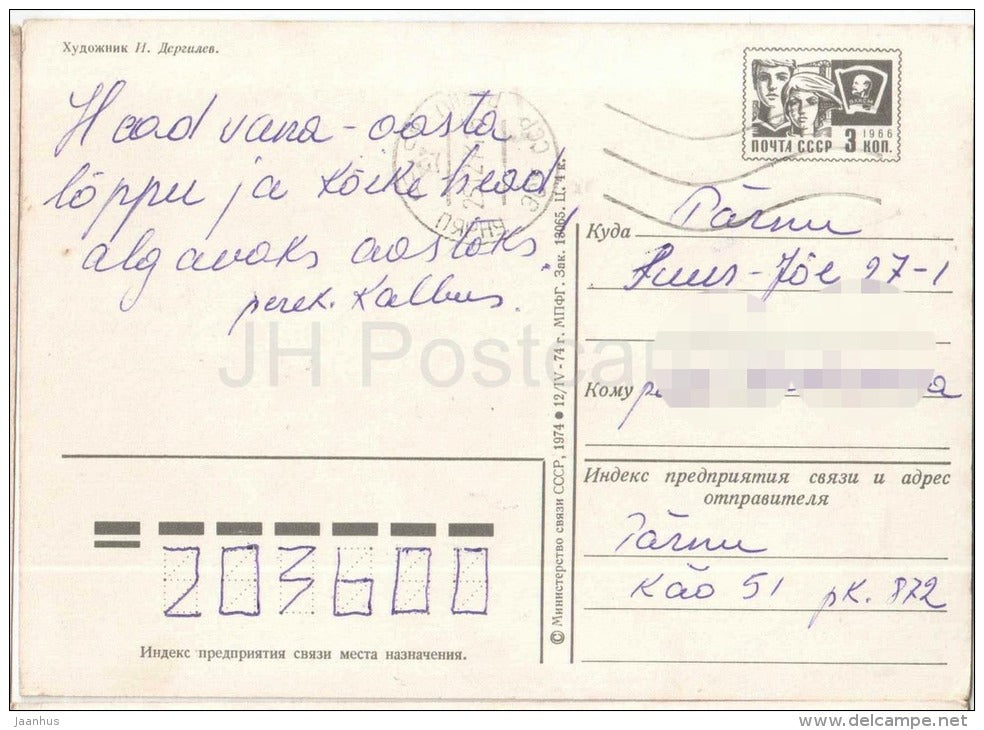 Художник И. Дергилев.
Head vana-aasta
lõppu ja kõike head
algavaks aastaks!
perek. Kalbus.
ПОЧТА СССР 3 КОП.
1966
ВЛКСМ
Куда Pärnu
Suur-Jõe 27-1
Кому
Индекс предприятия связи и адрес
отправителя
Pärnu
Käo 51 pk. 872
© Министерство связи СССР, 1974 ● 12/IV-74 г. МПФГ. Зак. 13065. Ц. 4 к.
203600
Индекс предприятия связи места назначения.
JH Postcards
jaanhus
www.delcampe.net